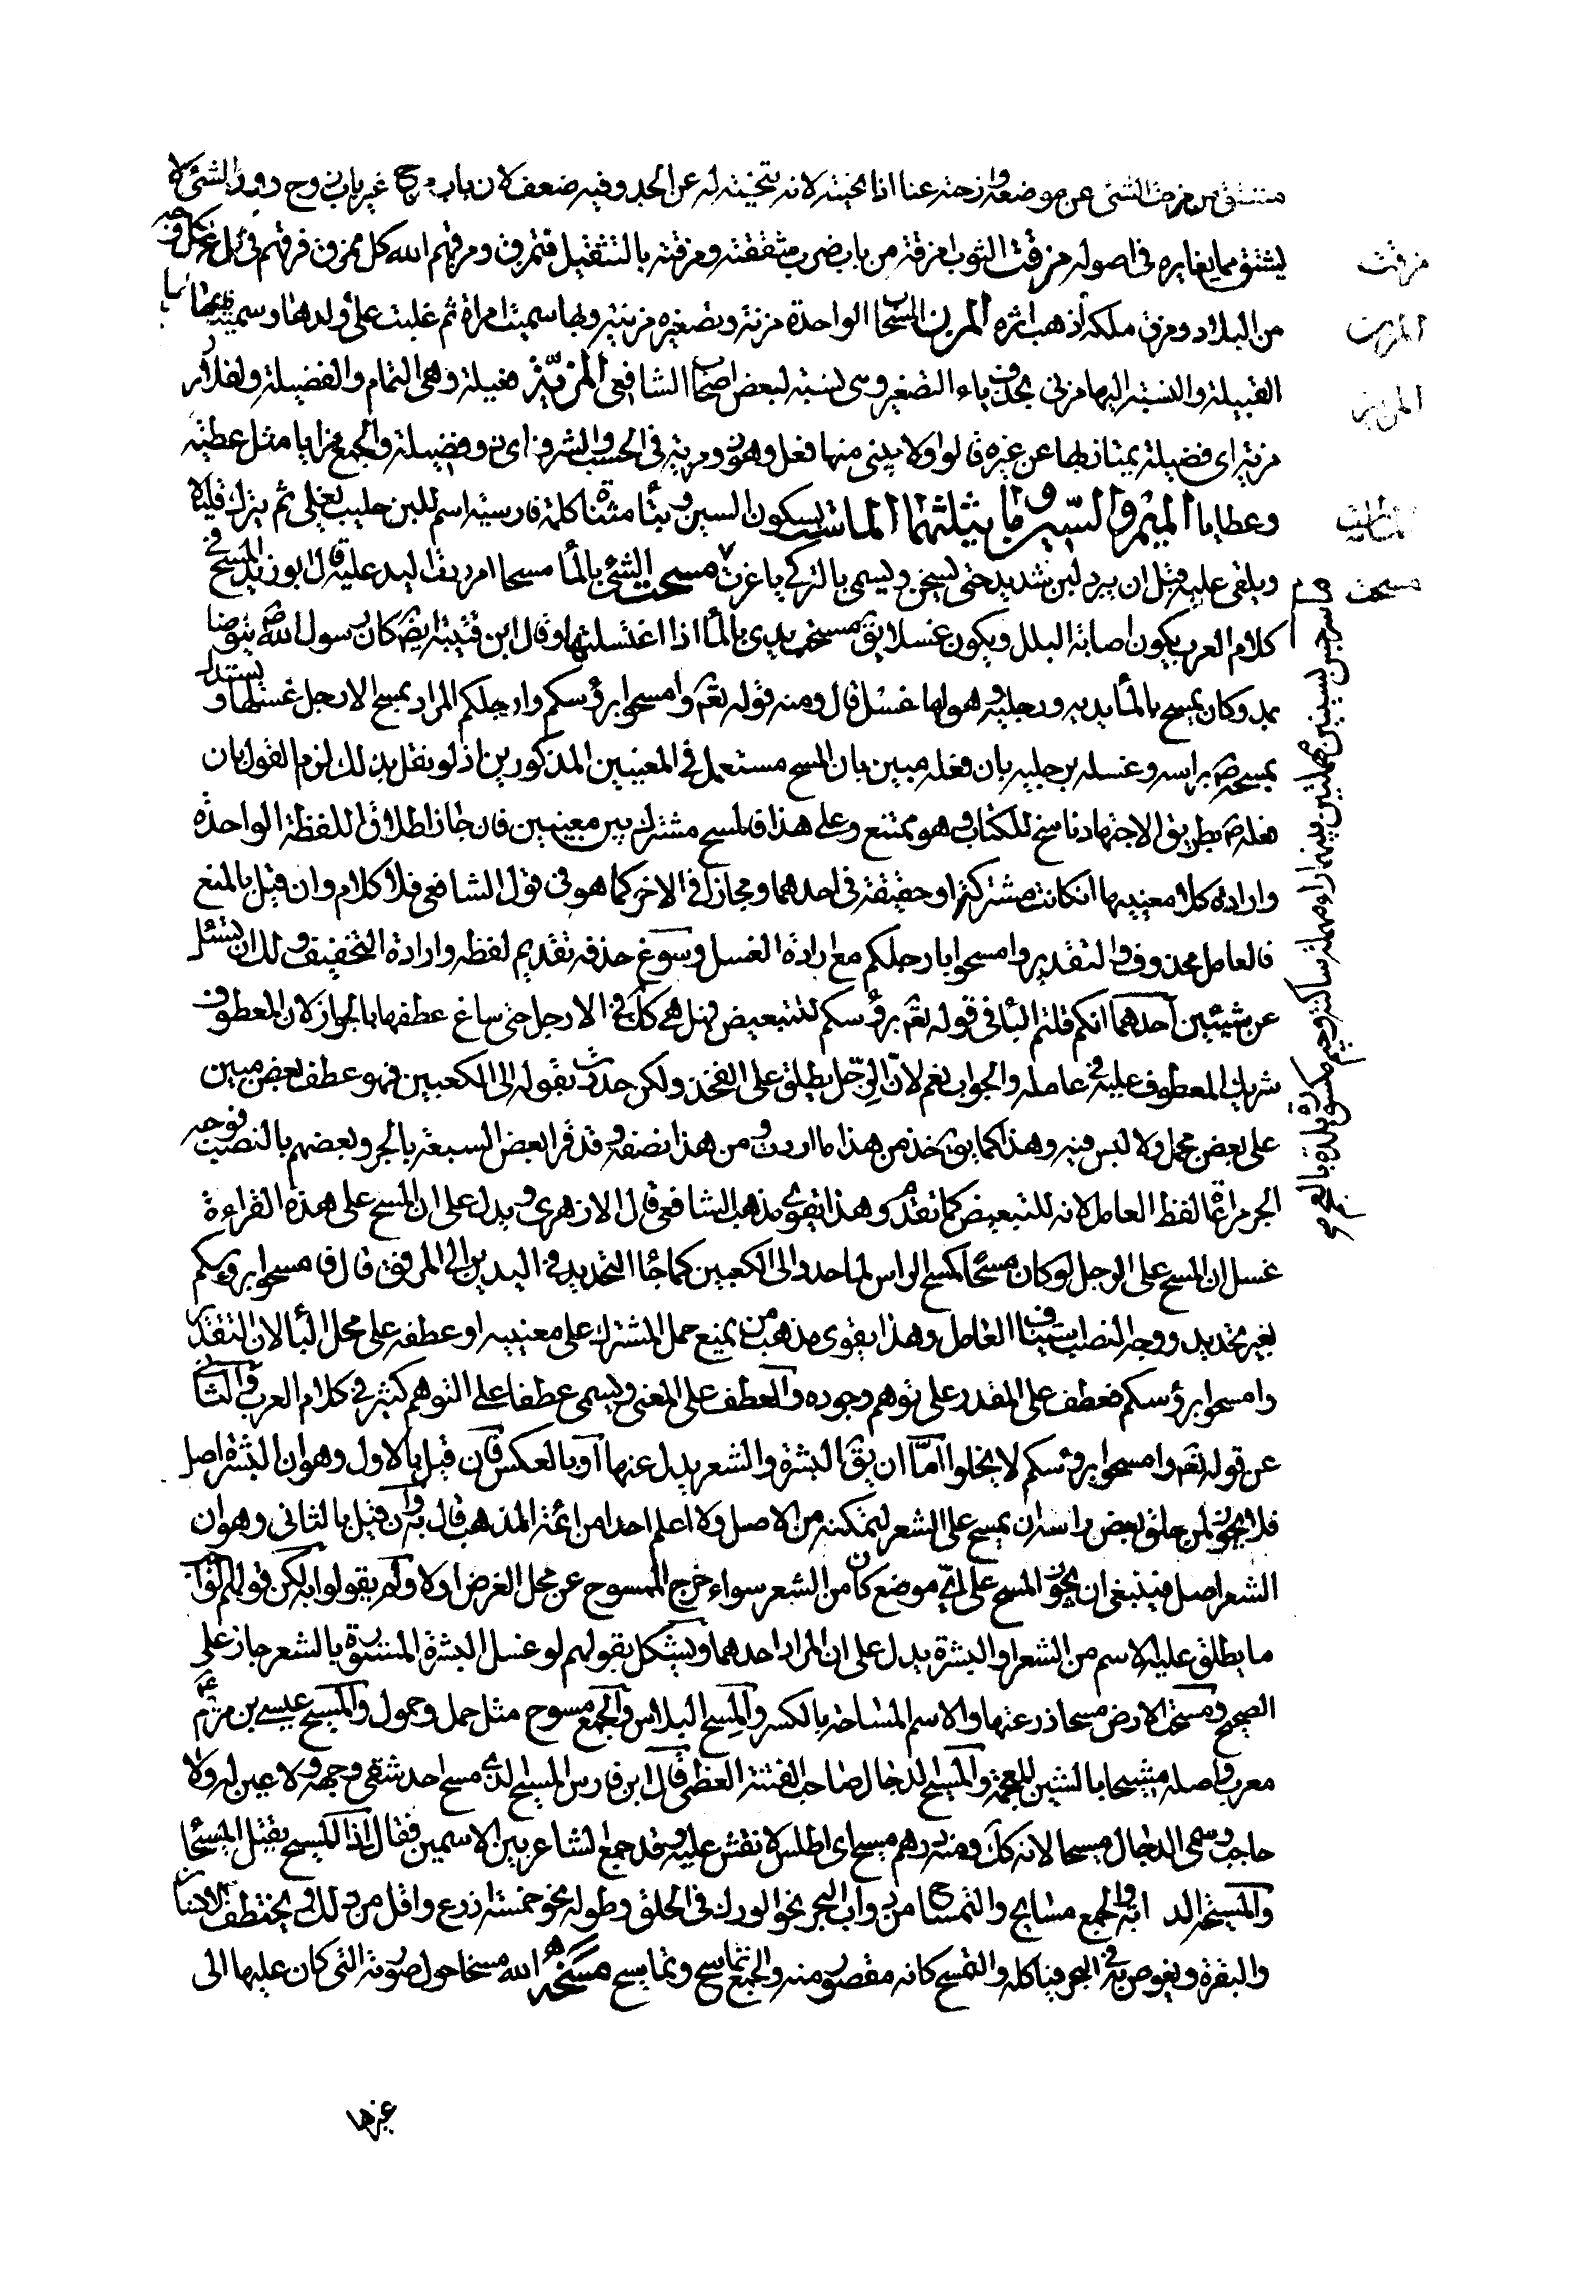 مشتق من زحت الشئ عن موضعه وازحته عنا اذا نحيته لانه تنحيته له عن الجد وفيه ضعف لان باب مزح غير باب زوح والشئ لا
يشتق مما يغايره فى اصوله مزقت الثوب مزقة من باب ضرب شققته ومزقته بالتثقيل فتمزق ومزقهم الله كل ممزق فرقهم فى كل وجه
من البلاد ومزق ملكه أذهب اثره المزن السحاب الواحدة مزنة وتصغيره مزينة وبها سميت امراة ثم غلبت على ولدها وسميت بها
القبيلة والنسبة اليها مزنى بحذف ياء التصغير وسى لنسبته لبعض اصحاب الشافعى المزيّة فعيلة وهى التمام والفضيلة ولفلان
مزية اى فضيلة يمتاز بها عن غيره قالوا ولا يبنى منها فعل وهو ذو مزية فى الحسب والشرف اى ذو فضيلة والجمع مزايا مثل عطية
وعطايا الميم والسين وما يثلثهما الماست بسكون السين وبتا مثناة كلمة فارسية اسم للبن حليب يغلى ثم يترك قليلا
ويلقى عليه قبل ان يبرد لبن شديد حتى يسخن ويسمى بالتركى ياغرت مسحت الشئ بالمأ مسحا امررت اليد عليه قال ابو زيد المسح فى
كلام العرب يكون اصابة البلل ويكون غسلا يق مسحت يدى بالمأ اذا غسلتها وقال ابن قتيبة ايضا كان رسول الله ص يتوضا
بمد وكان يمسح بالمأ يديه ورجليه وهو لها غسل قال ومنه قوله تعم وامسحوا برؤسكم وارجلكم المراد بمسح الارجل غسلها ويستدل
بمسحه ص براسه وغسله رجليه بان فعله مبين بان المسح مستعمل فى المعنيين المذكورين اذ لو نقل بذلك لزم القول بان
فعله ص بطريق الاجتهاد ناسخ للكتاب وهو ممتنع وعلى هذا فالمسح مشترك بين معنيين فان جاز اطلاق اللفظة الواحدة
وارادة كلا معنييها ان كانت مشتركة او حقيقة فى احدهما ومجازا فى الاخر كما هو فى قول الشافعى فلا كلام وان قيل بالمنع
فالعامل محذوف والتقدير وامسحوا بارجلكم مع ارادة الغسل وسوغ حذفه تقديم لفظه وارادة التخفيف ولك ان تسئل
عن شيئين احدهما انكم قلتم البأ فى قوله تعم برؤسكم للتبعيض فهل هى كذلك فى الارجل حتى ساغ عطفها بالجواز لان المعطوف
شريك المعطوف عليه فى عامله والجواب نعم لان الرِجل يطلق على الفخذ ولكن حددت بقوله الى الكعبين فهو عطف بعض مبين
على بعض مجمل ولا لبس فيه وهذا كما يق خذ من هذا ما اردت ومن هذا نصفه وقد قرا بعض السبعة بالجر وبعضهم بالنصب فوجه
الجر مراعاة لفظ العامل لانه للتبعيض كما تقدم وهذا يقوى مذهب الشافعى قال الازهرى ويدل على ان المسح على هذه القراءة
غسل ان المسح على الرجل لو كان مسحا كمسح الراس لما حدد الى الكعبين كما جأ التحديد فى اليدين الى المرفق قال فامسحوا برؤسكم
بغير تحديد ووجه النصب استيناف العامل وهذا يقوى مذهب من يمنع حمل المشترك على معنييه او عطفه على محل البأ لان التقدير
وامسحوا برؤسكم فعطف على المقدر على توهم وجوده والعطف على المعنى ويسمى عطفا على التوهم كثير فى كلام العرب والثانى
عن قوله تعم وامسحوا برؤسكم لا يخلوا امّا ان يق البشرة والشعر بدل عنها او بالعكس فان قيل بالاول وهو ان البشرة اصل
فلا يجوز لمن حلق بعض راسه ان يمسح على الشعر لتمكنه من الاصل ولا اعلم احدا من ائمة المذهب قال به وان قيل بالثانى وهو ان
الشعر اصل فينبغى ان يجوز المسح على اىّ موضع كان من الشعر سواء خرج الممسوح عن محل الفرض اولا ولم يقولوا به لكن قولهم اقل
ما يطلق عليه الاسم من الشعر او البشرة يدل على ان المراد احدهما ويشكل بقولهم لو غسل البشرة المستورة بالشعر جاز على
الصحيح ومسحت الارض مسحا ذرعتها والاسم المساحة بالكسر والمِسح البلاس والجمع مسوح مثل حمل وحمول والمسيح عيسى بن مريم عم
معرب واصله مشيحا بالشين المعجمة والمسيح الدجال صاحب الفتنة العظمى قال ابن فارس المسيح الذى مسح احد شقى وجهه ولا عين له ولا
حاجب وسمى الدجال مسيحا لانه كذلك ومنه درهم مسيح اى اطلس لا نقش عليه وقد جمع الشاعر بين الاسمين فقال اذا المسيح يقتل المسيحا
والمسيحة الد ابة والجمع مسايح والتمساح من دواب البحر نحو الورل فى الخلق وطوله نحو خمسة اذرع واقل من ذلك ويختطف الانسان
والبقرة ويغوص به فى البحر فياكله والتمسح كانه مقصور منه والجمع تماسح وتماسيح مسخه الله مسخا حول صورته التى كان عليها الى
غيرها
مزقت
المزن
المزية
الماست
مسحت
سرجس بسينين مهملتين بينهما راء مهملة ساكنة وجيم مكسورة بلدة بالعجم